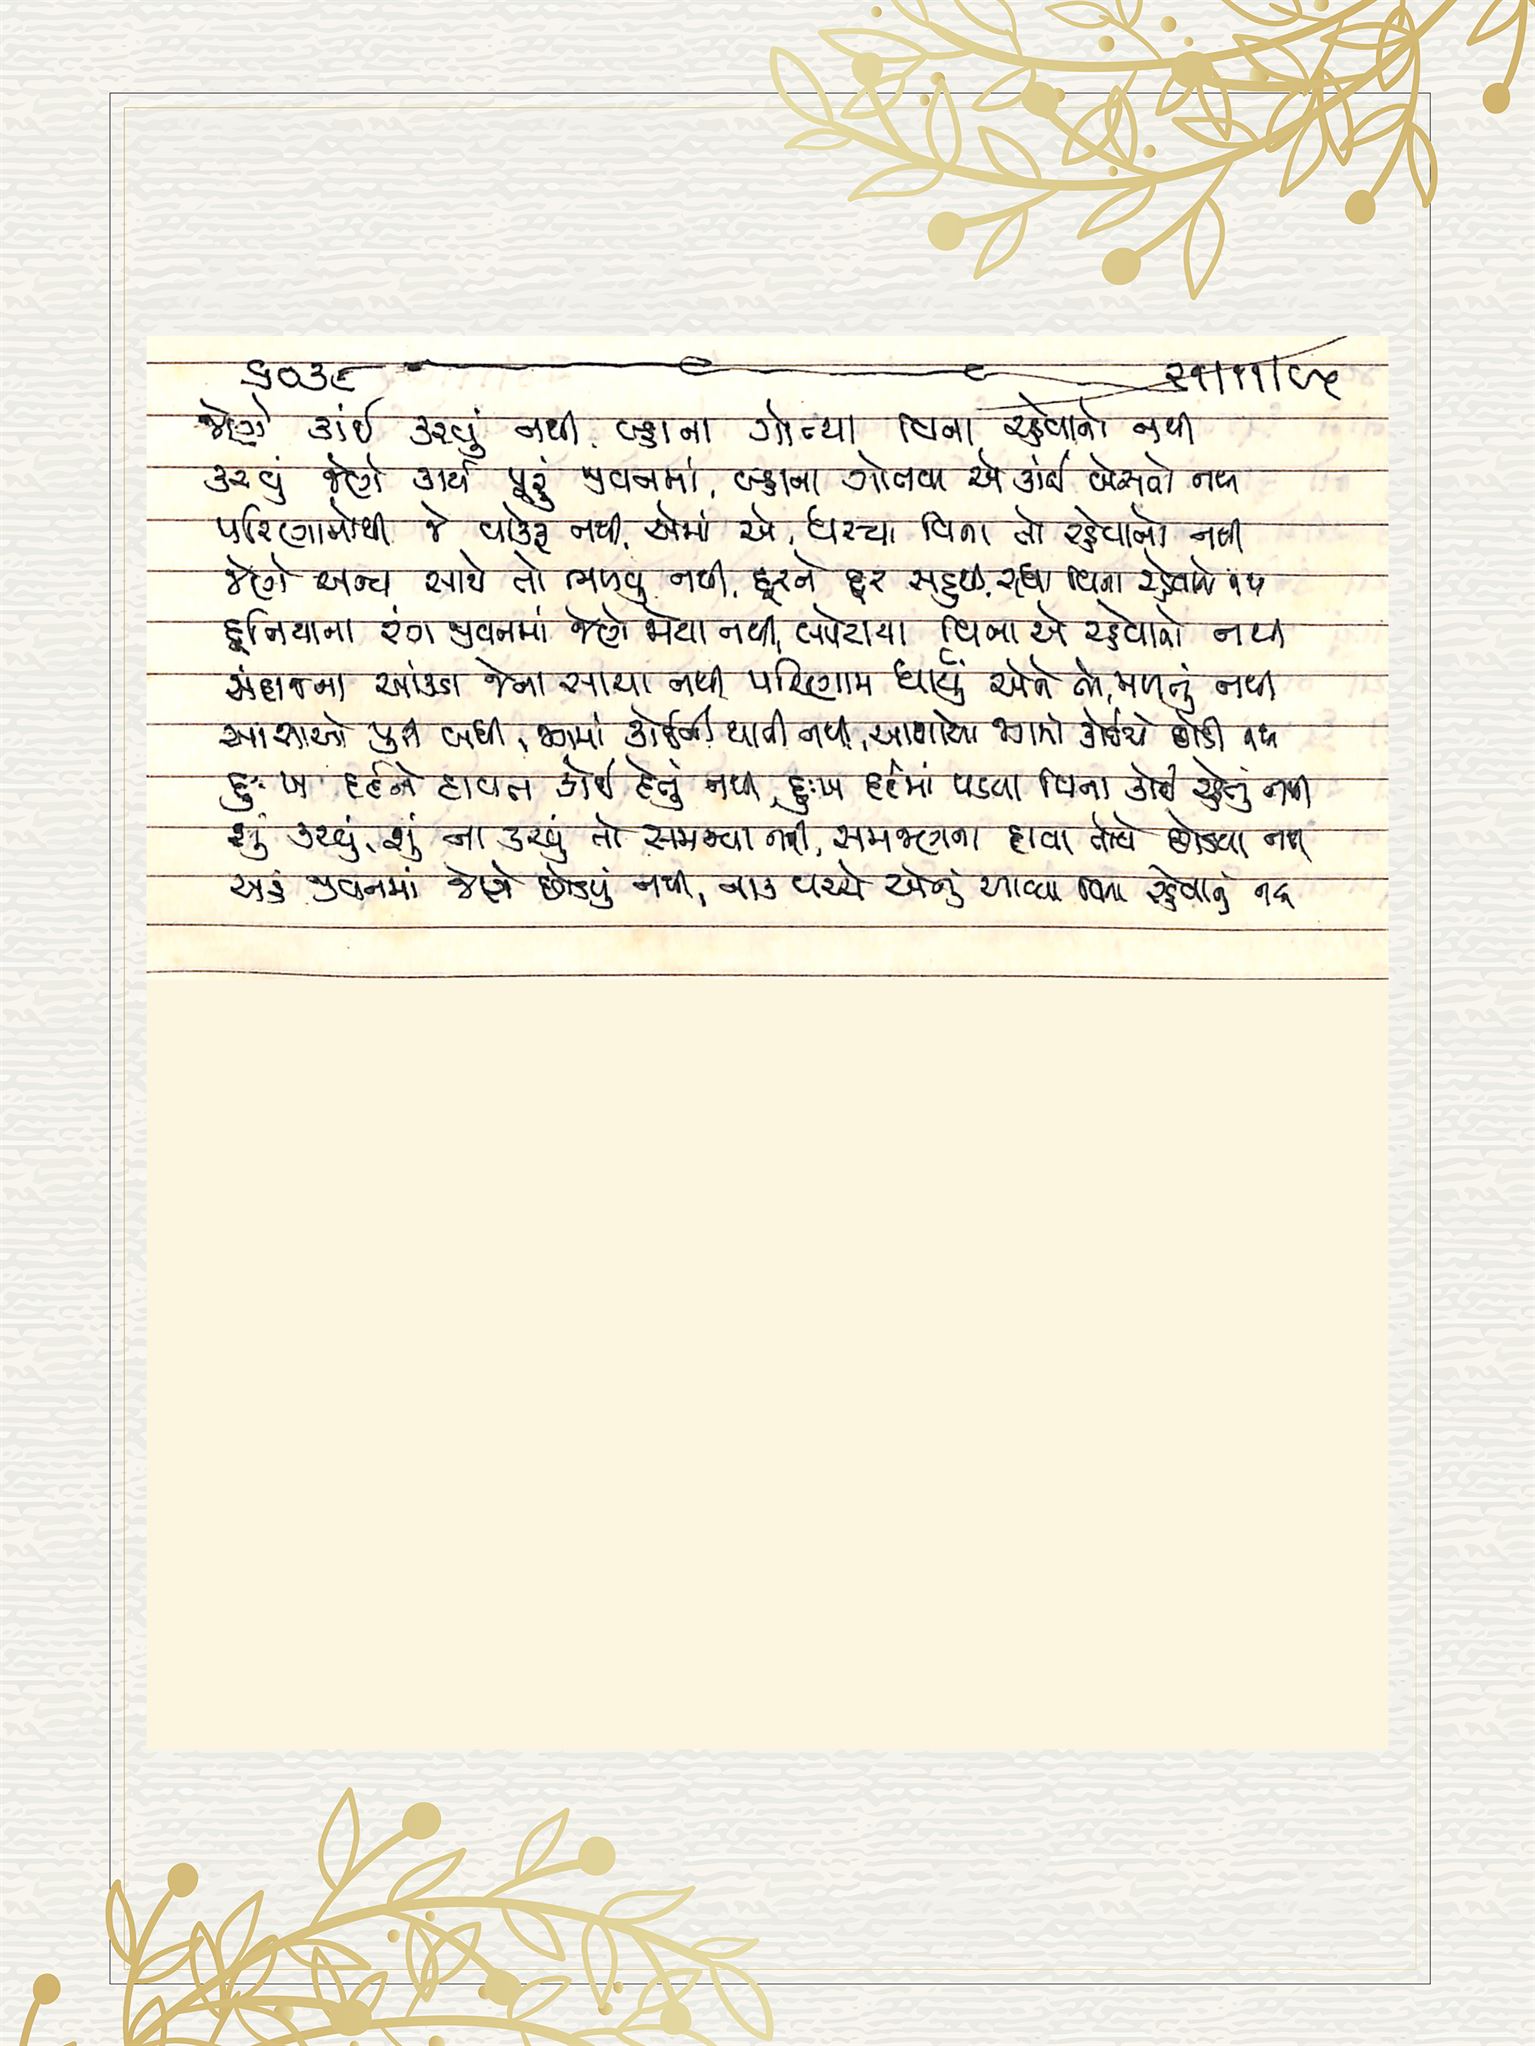 ૬૦૩૯ ૨૧/૧૧/૮૫
જેણે કાંઈ કરવું નથી, બહાના ગોત્યા વિના રહેવાનો નથી
કરવું જેણે કાર્ય પૂરું જીવનમાં, બહાના ગોતવા એ કાંઈ બેસતો નથી
પરિણામોથી જે વાકેફ નથી, એમાં એ, ધસ્યા વિના તો રહેવાનો નથી
જેણે અન્ય સાથે તો ભળવું નથી, દૂરને દૂર સહુથી, રહ્યા વિના રહેવાનો નથી
દુનિયાના રંગ જીવનમાં જેણે જોયા નથી, બનેરાયા વિના એ રહેવાનો નથી
અંદાજના આંકડા જેના સાચા નથી પરિણામ ધાર્યું એને તો, મળતું નથી
આશાઓ જીત બધી, જગમાં કોઈની થાતી નથી, આશાઓ જગમાં કોઈએ છોડી નથી
દુઃખ દર્દને દાવત કોઈ દેતું નથી, દુઃખ દર્દમાં પડયા વિના કોઈ રહેતું નથી
શું કરવું, શું ના કરવું તો સમજ્યા નથી, સમજણના દાવા તોયે છોડયા નથી
અહં જીવનમાં જેણે છોડયું નથી, નાક વચ્ચે એનું આવ્યા વિના રહેવાનું નથી